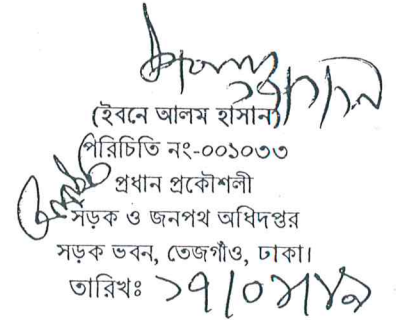 (ইবনে আলম হাসান)
পরিচিতি নং-০০১০৩৩
প্রধান প্রকৌশলী
সড়ক ও জনপথ অধিদপ্তর
সড়ক ভবন, তেজগাঁও, ঢাকা।
তারিখঃ